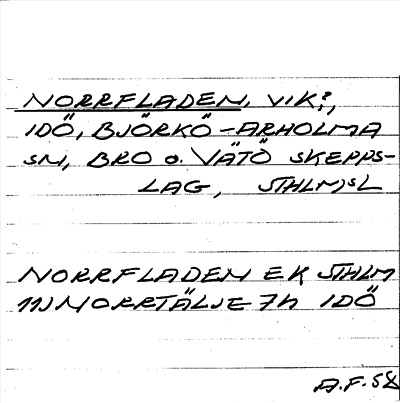 NORRFLADEN, VIK?,
IDÖ, BJÖRKÖ-ARHOLMA
SN, BRO o. VÄTÖ SKEPPS-
LAG, STHLMSL
NORRFLADEN EK STHLM
11J NORRTÄLJE 7h IDÖ
A.F. 58